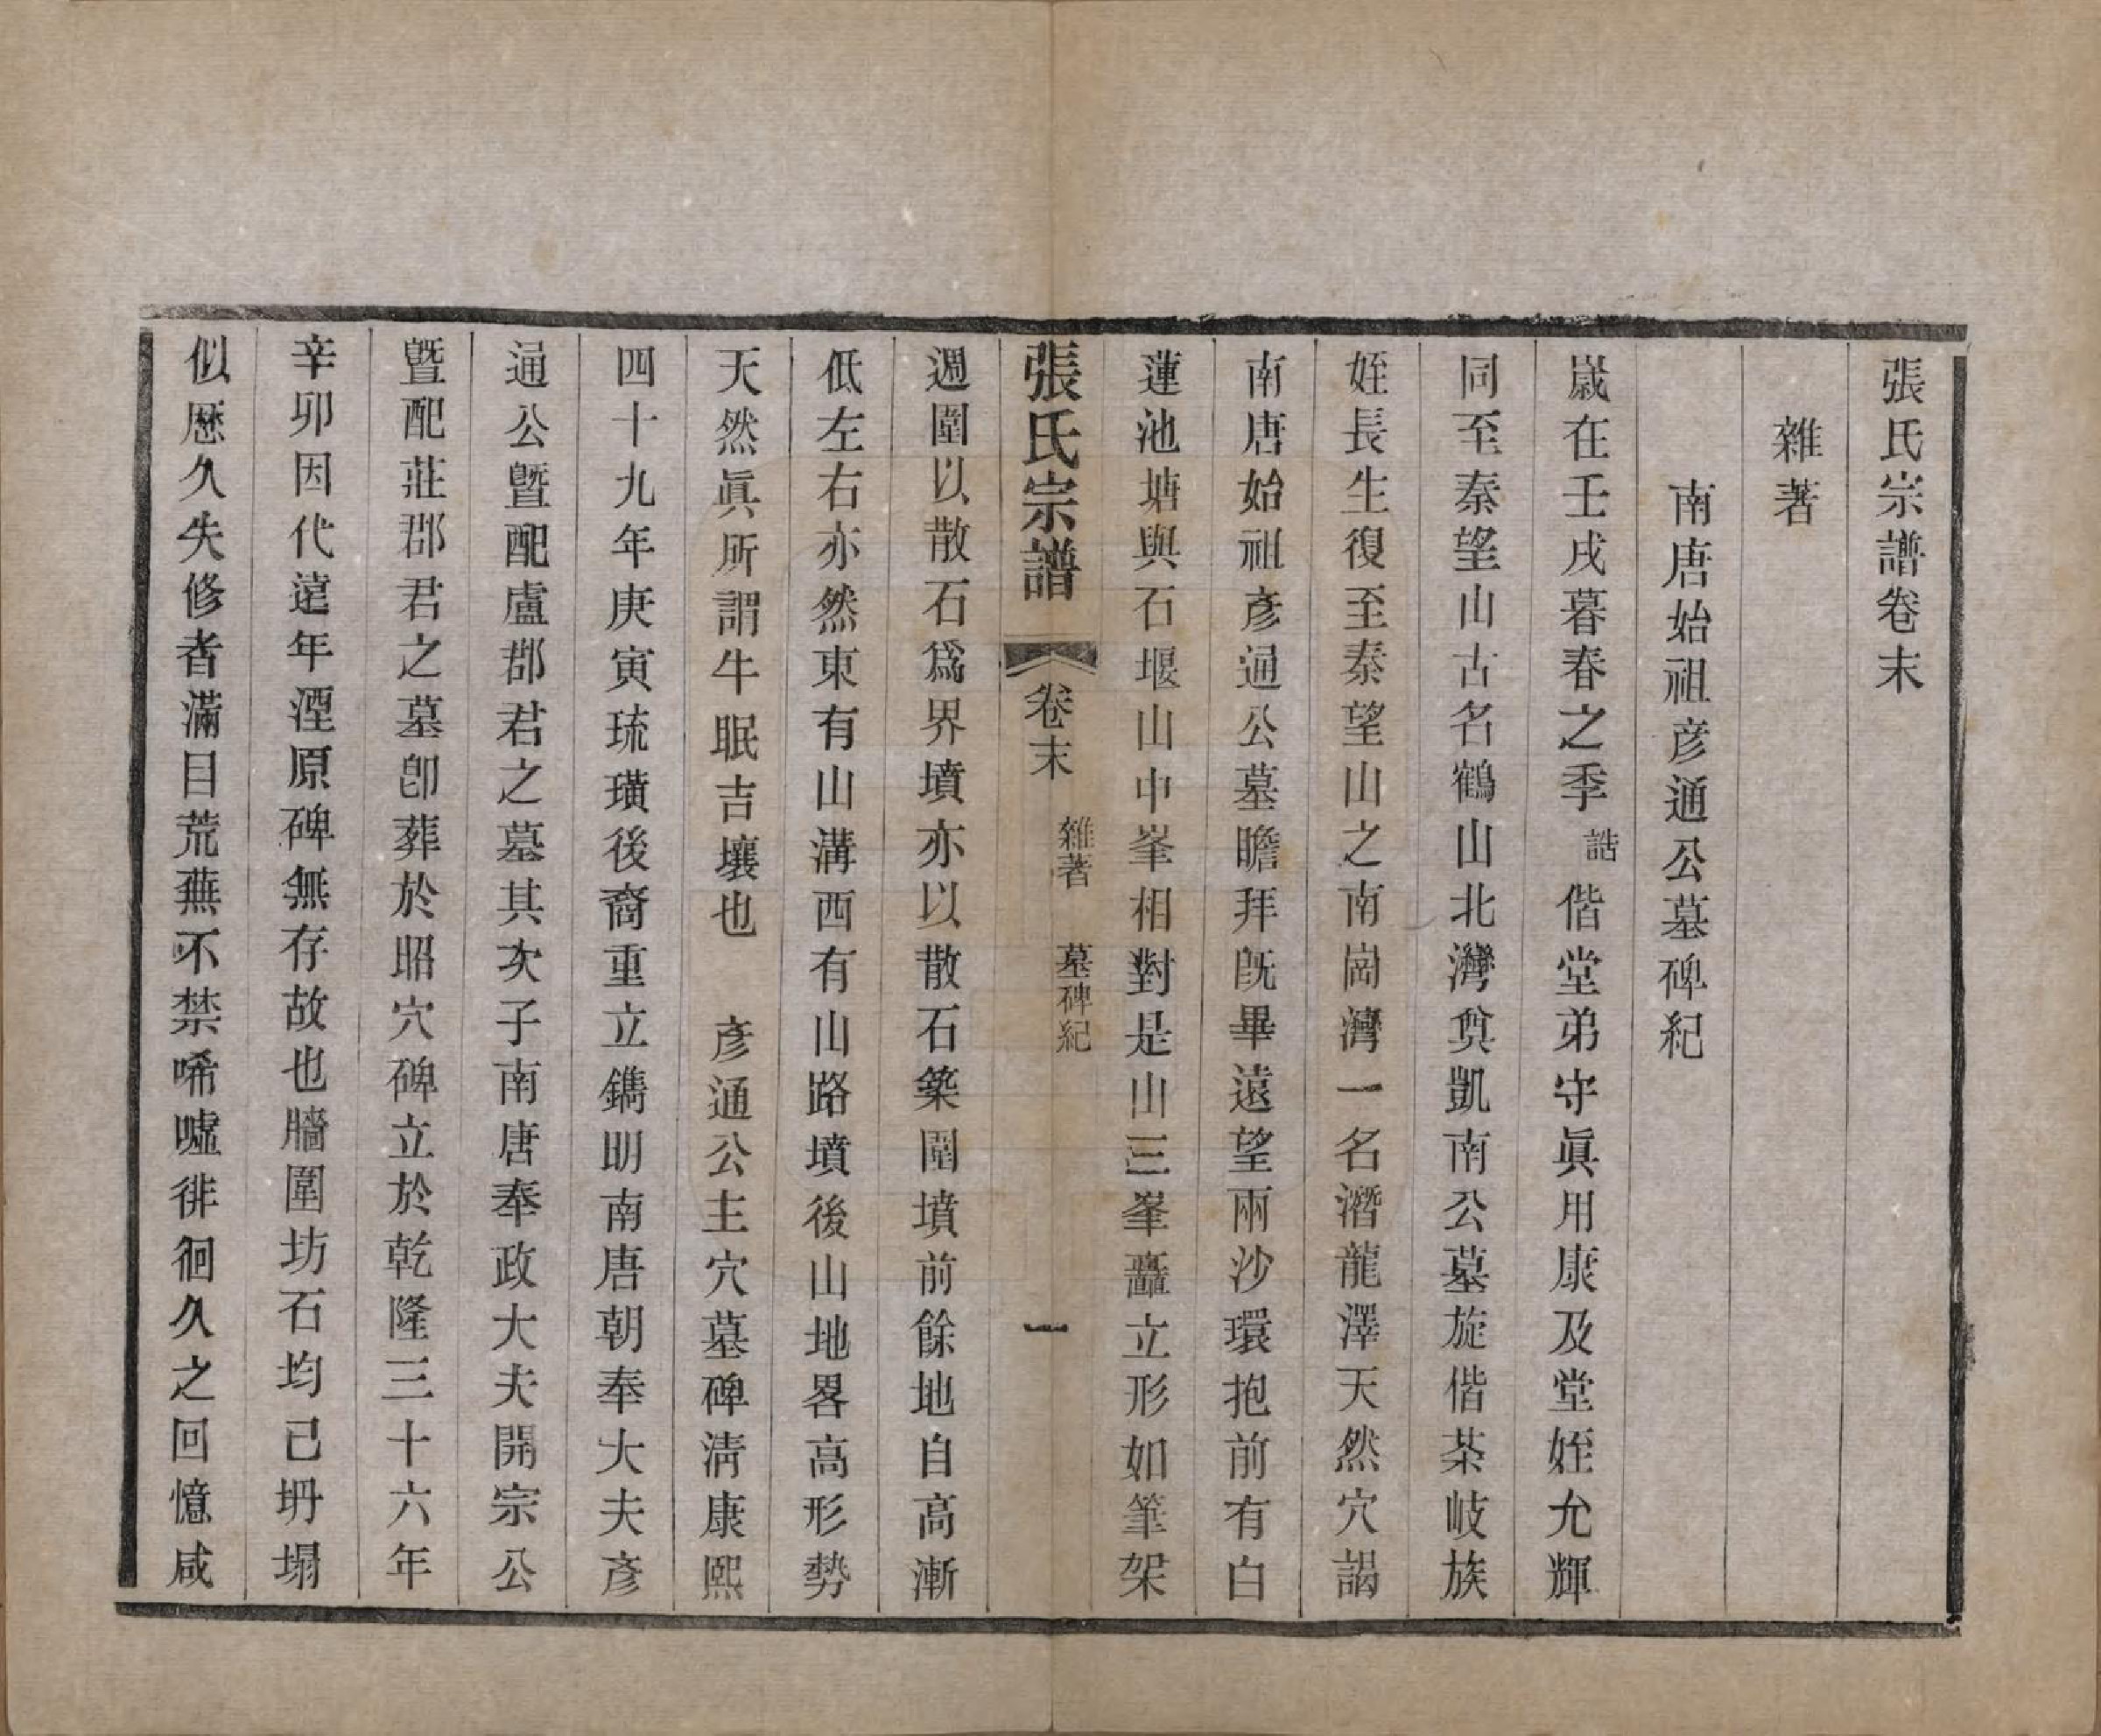 張氏宗譜卷末
雜著
南唐始祖彥通公墓碑紀
歲在壬戌暮春之季誥偕堂弟守眞用康及堂姪允輝
同至秦望山古名鶴山北灣奠凱南公墓旋偕茶岐族
姪長生復至秦望山之南崗灣一名潛龍澤天然穴謁
南唐始祖彥通公墓瞻拜旣畢遠望兩沙環抱前有白
蓮池塘與石堰山中峯相對是山三峯矗立形如筆架
張氏宗譜 卷末 雜著 墓碑紀 一
週圍以散石爲界墳亦以散石築圍墳前餘地自高漸
低左右亦然東有山溝西有山路墳後山地畧高形勢
天然眞所謂牛眠吉壤也 彥通公主穴墓碑淸康熙
四十九年庚寅琉璜後裔重立鐫明南唐朝奉大夫彥
通公曁配盧郡君之墓其次子南唐奉政大夫開宗公
曁配莊郡君之墓卽葬於昭穴碑立於乾隆三十六年
辛卯因代遠年湮原碑無存故也牆圍坊石均已坍塌
似歷久失修者滿目荒蕪不禁唏噓徘徊久之回憶咸